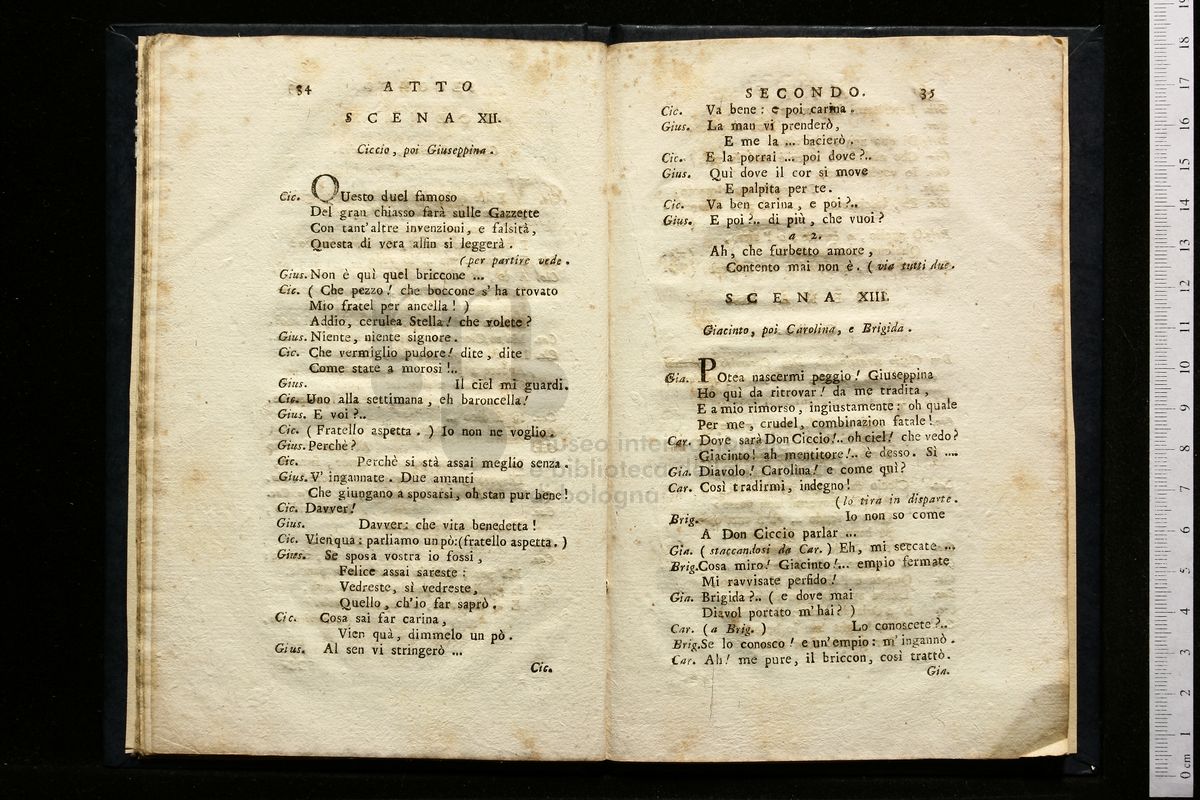 34 ATTO
SCENA XII.
Ciccio, poi Giuseppina.
Cic. QUesto duel famoso
Del gran chiasso farà sulle Gazzette
Con tant'altre invenzioni, e falsità,
Questa di vera alfin si leggerà.
(per partire vede.
Gius. Non è quì quel briccone ...
Cic. ( Che pezzo! che boccone s'ha trovato
Mio fratel per ancella! )
Addio, cerulea Stella! che volete?
Gius. Niente, niente signore.
Cic. Che vermiglio pudore! dite, dite
Come state a morosi!..
Gius. Il ciel mi guardi.
Cic. Uno alla settimana, eh baroncella!
Gius. E voi?..
Cic. ( Fratello aspetta. ) Io non ne voglio.
Gius. Perchè?
Cic. Perchè si stà assai meglio senza.
Gius. V'ingannate. Due amanti
Che giungano a sposarsi, oh stan pur bene!
Cic. Davver!
Gius. Davver: che vita benedetta!
Cic. Vien qua: parliamo un pò: (fratello aspetta.)
Gius. Se sposa vostra io fossi,
Felice assai sareste:
Vedreste, sì vedreste,
Quello, ch'io far saprò.
Cic. Cosa sai far carina,
Vien quà, dimmelo un pò.
Gius. Al sen vi stringerò ...
Cic.
SECONDO. 35
Cic. Va bene: e poi carina.
Gius. La man vi prenderò,
E me la ... bacierò.
Cic. E la porrai ... poi dove?..
Gius. Quì dove il cor si move
E palpita per te.
Cic. Va ben carina, e poi?..
Gius. E poi?.. di più, che vuoi?
a 2.
Ah, che furbetto amore,
Contento mai non è. (via tutti due.
SCENA XIII.
Giacinto, poi Carolina, e Brigida.
Gia. POtea nascermi peggio! Giuseppina
Ho quì da ritrovar! da me tradita,
E a mio rimorso, ingiustamente: oh quale
Per me, crudel, combinazion fatale!
Car. Dove sarà Don Ciccio!.. oh ciel! che vedo?
Giacinto! ah mentitore!.. è desso. Sì ....
Gia. Diavolo! Carolina! e come quì?
Car. Così tradirmi, indegno!
(lo tira in disparte.
Brig. Io non so come
A Don Ciccio parlar ...
Gia. (staccandosi da Car.) Eh, mi seccate ...
Brig. Cosa miro! Giacinto!... empio fermate
Mi ravvisate perfido!
Gia. Brigida?.. ( e dove mai
Diavol portato m'hai? )
Car. (a Brig.) Lo conoscete?..
Brig. Se lo conosco! e un'empio: m'ingannò.
Car. Ah! me pure, il briccon, così trattò.
Gia.
museo inter
biblioteca
bologna